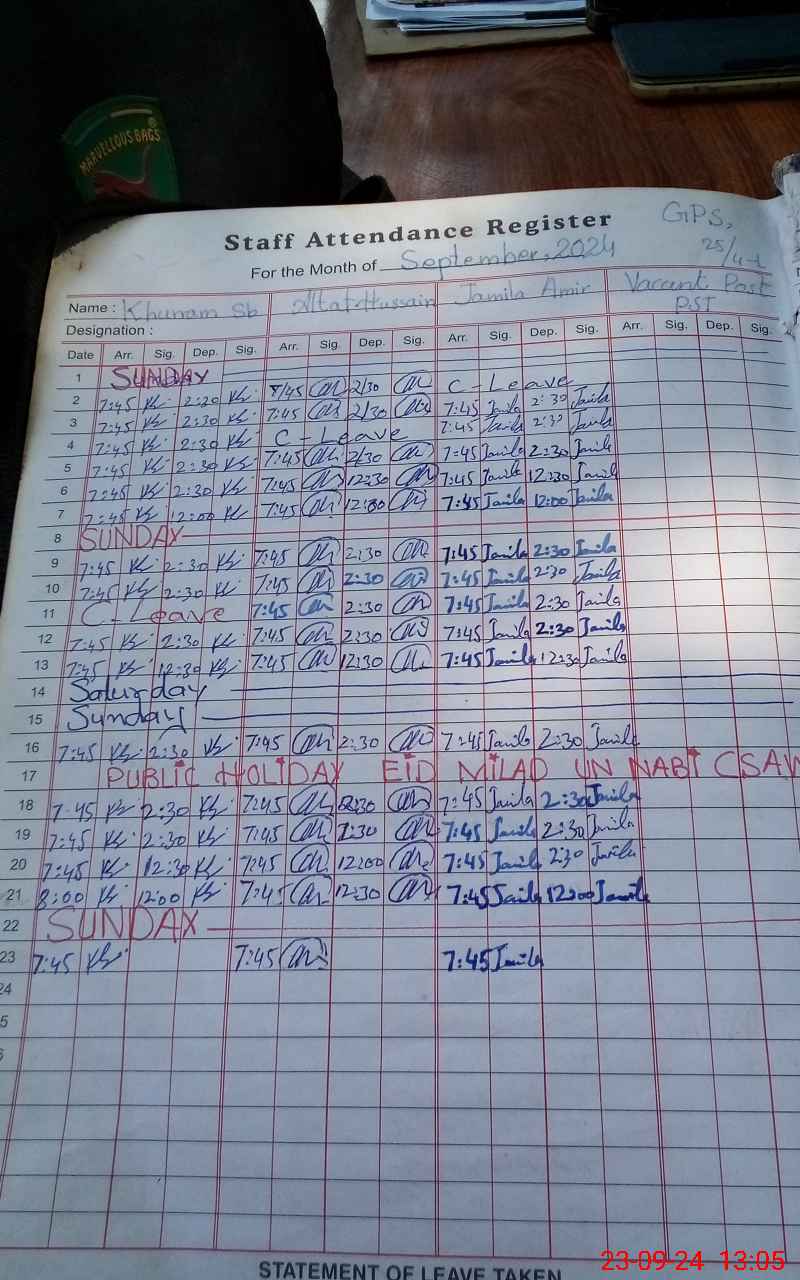 MARVELLOUS BAGS
®
Staff Attendance Register
GPS,
For the Month of September, 2024
25/4-L
Name : Khunam Sb Altaf Hussain Jamila Amir Vacant Post
Designation : PST
Date Arr. Sig. Dep. Sig. Arr. Sig. Dep. Sig. Arr. Sig. Dep. Sig. Arr. Sig. Dep. Sig.
1 SUNDAY
2 7:45 2:30 7/45 2/30 C-Leave
3 7:45 2:30 7:45 2/30 7:45 Jamila 2:30 Jamila
4 7:45 2:30 C-Leave 7:45 Jamila 2:30 Jamila
5 7:45 2:30 7:45 2/30 7:45 Jamila 2:30 Jamila
6 7:45 2:30 7:45 12:30 7:45 Jamila 12:30 Jamila
7 7:45 12:00 7:45 7:45 Jamila 12:00 Jamila
8 SUNDAY
9 7:45 2:30 7:45 2:30 7:45 Jamila 2:30 Jamila
10 7:45 2:30 7:45 2:30 7:45 Jamila 2:30 Jamila
11 C-Leave 7:45 2:30 7:45 Jamila 2:30 Jamila
12 7:45 2:30 7:45 2:30 7:45 Jamila 2:30 Jamila
13 7:45 12:30 7:45 12:30 7:45 Jamila 12:30 Jamila
14 Saturday
15 Sunday
16 7:45 2:30 7:45 2:30 7:45 Jamila 2:30 Jamila
17 PUBLIC HOLIDAY EID MILAD UN NABI CSAW
18 7:45 2:30 7:45 2:30 7:45 Jamila 2:30 Jamila
19 7:45 2:30 7:45 2:30 7:45 Jamila 2:30 Jamila
20 7:45 12:30 7:45 12:00 7:45 Jamila 2:30 Jamila
21 8:00 12:00 7:45 12:30 7:45 Jamila 12:00 Jamila
22 SUNDAY
23 7:45 7:45 7:45 Jamila
24
5
STATEMENT OF LEAVE TAKEN
23-09-24 13:05